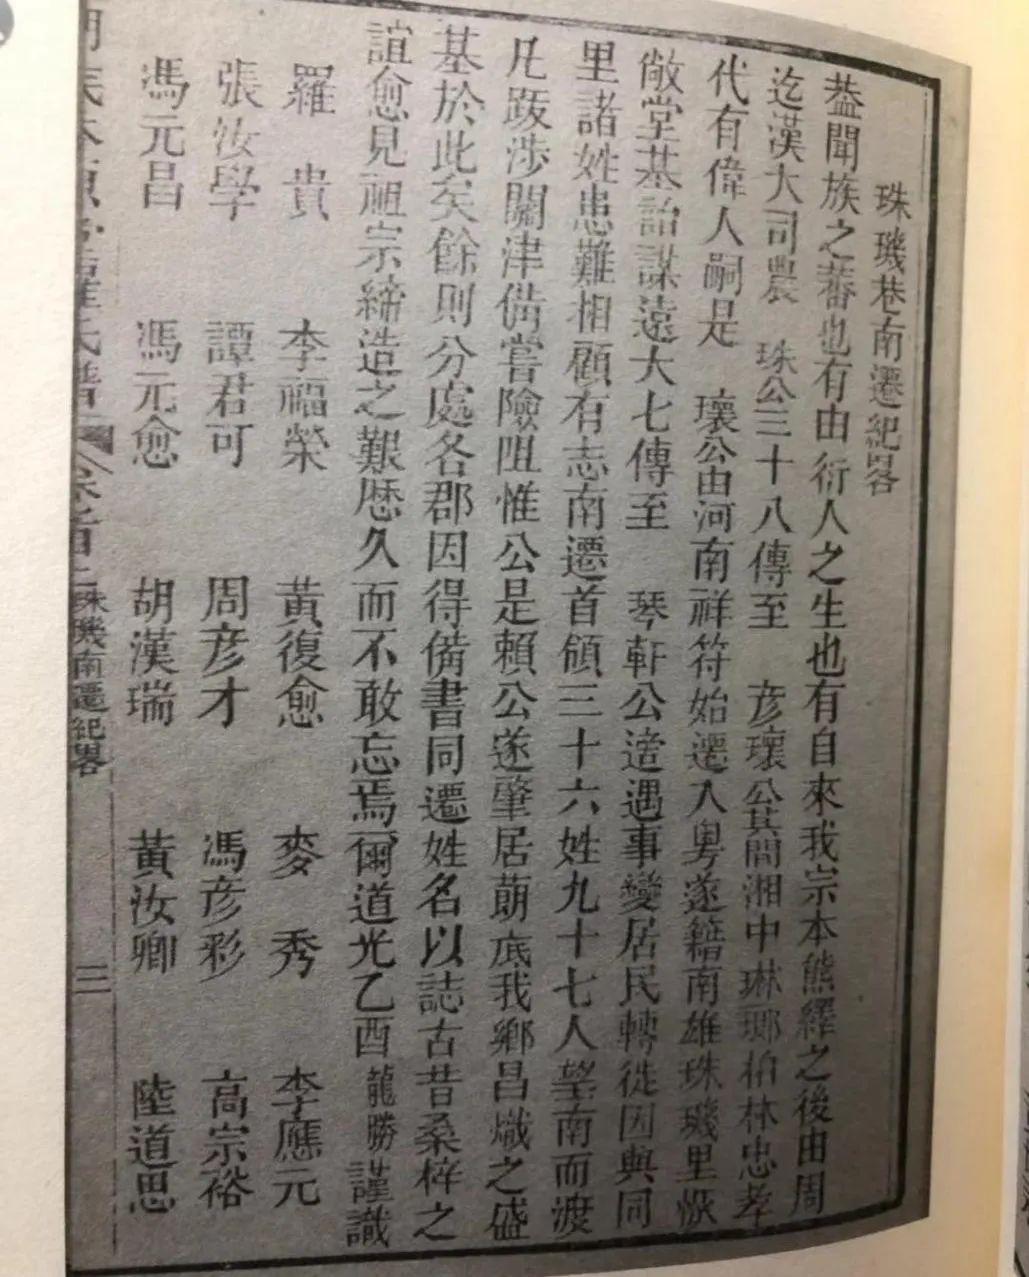 珠璣巷南遷紀畧
葢聞族之蕃也有由衍人之生也有自來我宗本熊繹之後由周
迄漢大司農 珠公三十八傳至 彦瓌公其間湘中琳瑯柏林忠孝
代有偉人嗣是 瓌公由河南祥符始遷入粤遂籍南雄珠璣里恢
敞堂基詒謀遠大七傳至 琴軒公適遇事變居民轉徙因與同
里諸姓患難相顧有志南遷首領三十六姓九十七人望南而渡
凡跋涉關津備嘗險阻惟公是賴公遂肇居蓢底我鄉昌熾之盛
基於此矣餘則分處各郡因得備書同遷姓名以誌古昔桑梓之
誼愈見祖宗締造之艱歷久而不敢忘焉爾道光乙酉龍勝謹識
羅 貴 李福榮 黃復愈 麥 秀 李應元
張汝學 譚君可 周彦才 馮彦彩 高宗裕
馮元昌 馮元愈 胡漢瑞 黃汝卿 陸道思
羅氏譜 卷之首上 珠璣南遷紀畧 三